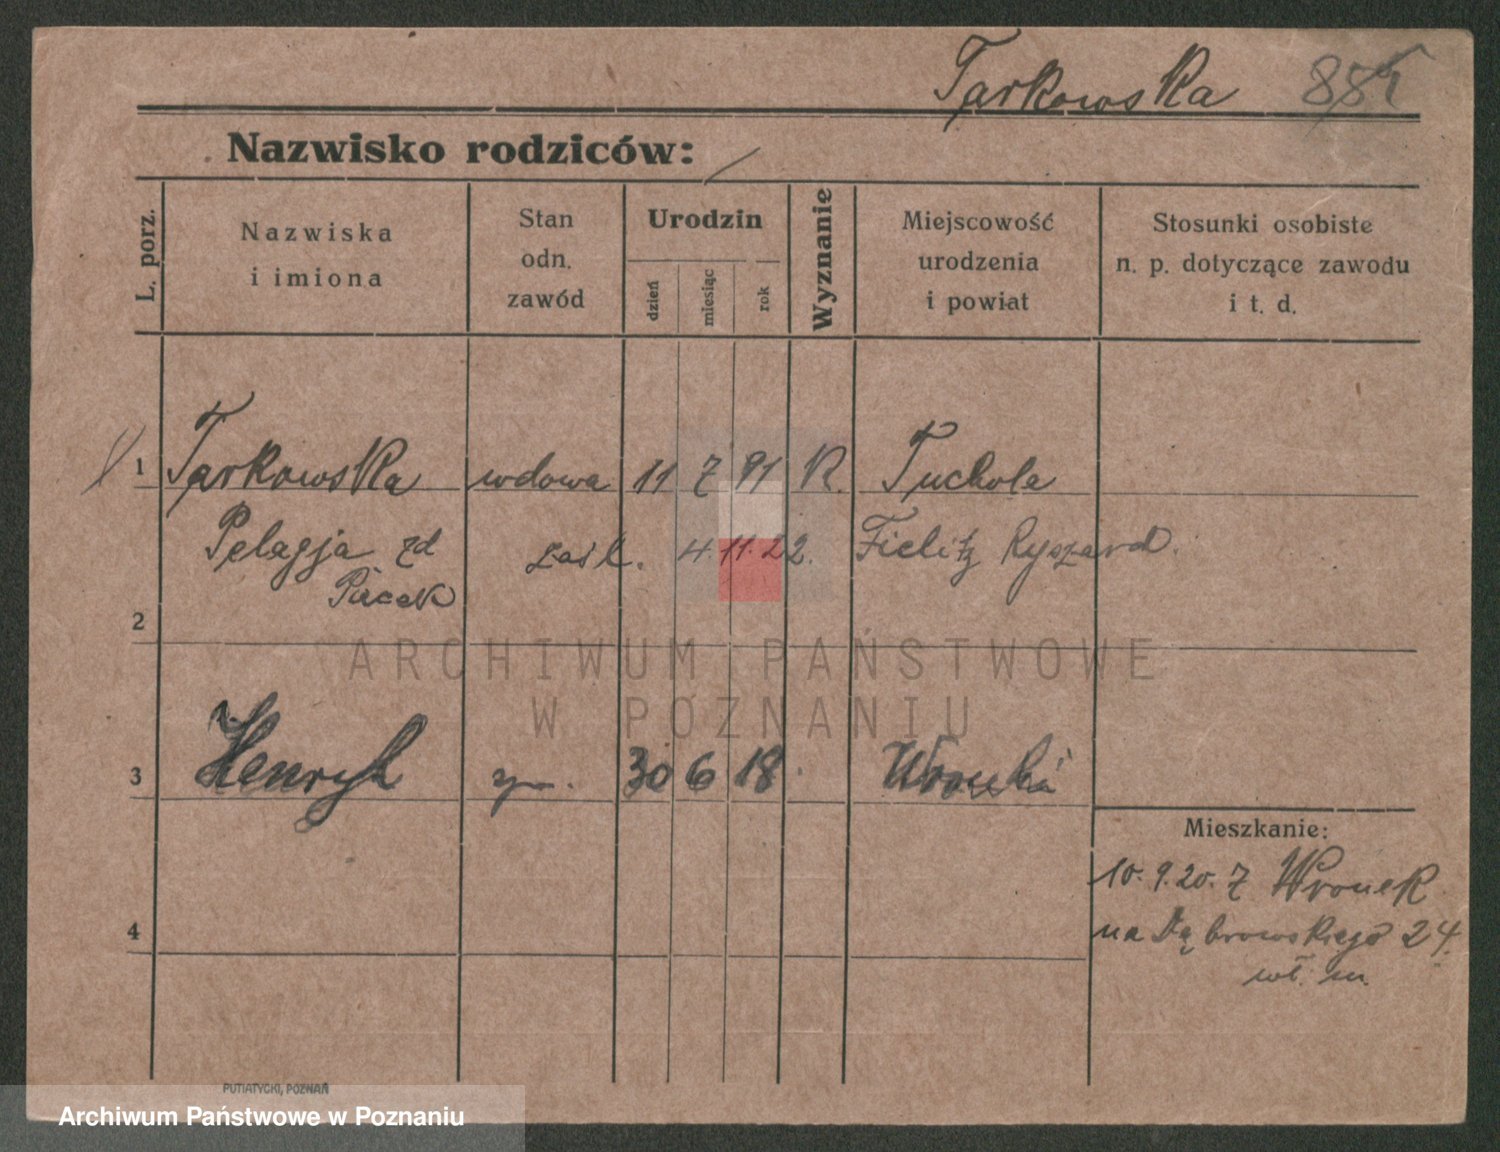 Tarkowska 884
Nazwisko rodziców: /
L. porz.
Nazwiska
i imiona
Stan
odn.
zawód
Urodzin
dzień
miesiąc
rok
Wyznanie
Miejscowość
urodzenia
i powiat
Stosunki osobiste
n. p. dotyczące zawodu
i t. d.
1 Tarkowska wdowa 11 7 91 R. Tuchola
Pelagja zd zaśl. 4.11.22. Fielitz Ryszard.
Piicek
2
3 Henryk 30 6 18 Wronki
Mieszkanie:
10.9.20. z Wronek
4
na Dąbrowskiego 24.
wł. m.
PUTIATYCKI, POZNAŃ
ARCHIWUM PAŃSTWOWE
W POZNANIU
Archiwum Państwowe w Poznaniu